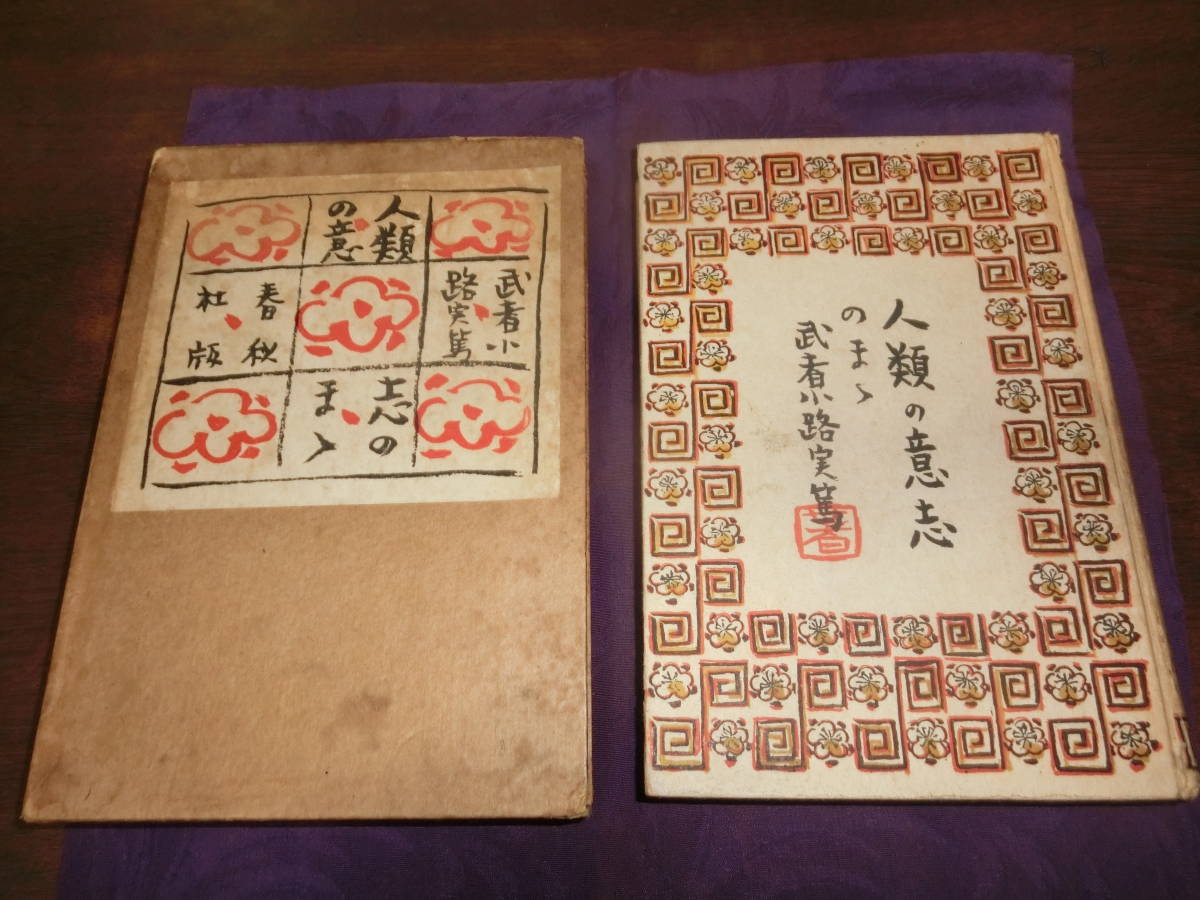 人類
の意
志の
まゝ
武者小
路実篤
春秋
社版
人類の意志
のまゝ
武者小路実篤